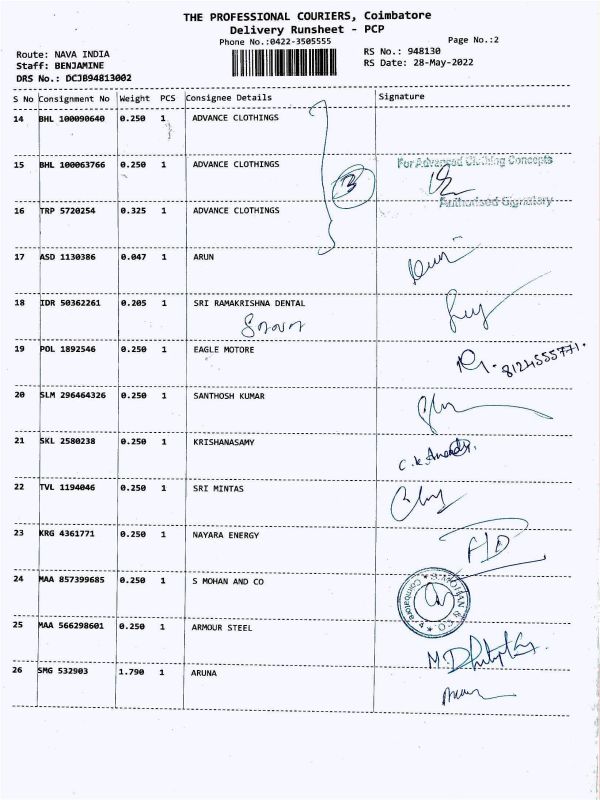 THE PROFESSIONAL COURIERS, Coimbatore
Delivery Runsheet - PCP
Phone No.:0422-3505555
Page No.:2
Route: NAVA INDIA
RS No.: 948130
Staff: BENJAMINE
RS Date: 28-May-2022
DRS No.: DCJB94813002
S No Consignment No Weight PCS Consignee Details Signature
14 BHL 100090640 0.250 1 ADVANCE CLOTHINGS
15 BHL 100063766 0.250 1 ADVANCE CLOTHINGS
For Advanced Clothing Concepts
3
Authorised Signatory
16 TRP 5720254 0.325 1 ADVANCE CLOTHINGS
17 ASD 1130386 0.047 1 ARUN
18 IDR 50362261 0.205 1 SRI RAMAKRISHNA DENTAL
19 POL 1892546 0.250 1 EAGLE MOTORE
8124555771.
20 SLM 296464326 0.250 1 SANTHOSH KUMAR
21 SKL 2580238 0.250 1 KRISHANASAMY
22 TVL 1194046 0.250 1 SRI MINTAS
23 KRG 4361771 0.250 1 NAYARA ENERGY
24 MAA 857399685 0.250 1 S MOHAN AND CO
S. MOHAN & CO. Coimbatore
25 MAA 566298601 0.250 1 ARMOUR STEEL
26 SMG 532903 1.790 1 ARUNA